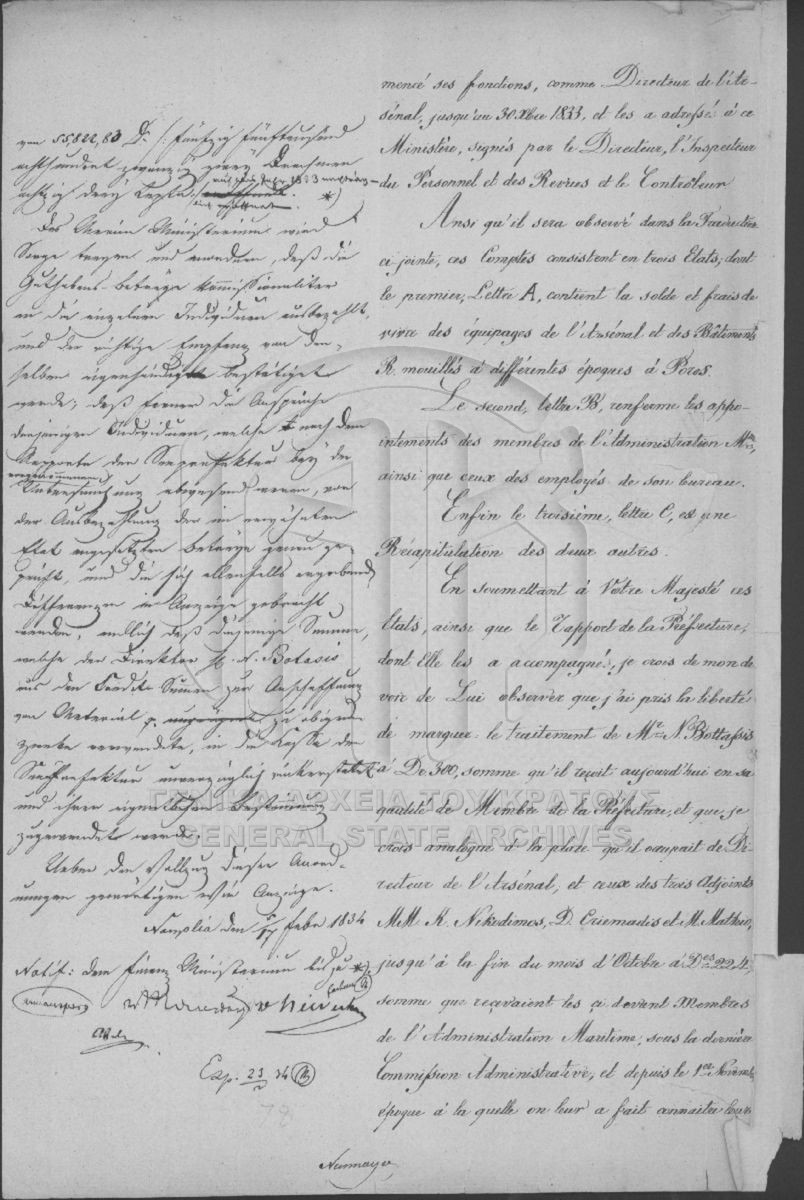 von 55,822,83 Dr. /: fünfzig fünftausend
achthundert zwanzig zwey Drachmen
achtzig drey Lepta
Das Marine Ministerium wird
Sorge tragen und wachen, daß die
Guthabens-beträge kommissionaliter
an die einzelnen Individuen ausbezahlt,
und der richtige Empfang von den-
selben eigenhändig bestätiget
werde; daß ferner die Ansprüche
derjenigen Individuen, welche nach dem
Rapporte der Seepraefektur bey der
Untersuchung abwesend waren, vor
der Ausbezahlung der im erwähnten
Etat angesetzten beträge genau ge-
prüft, und die sich allenfalls ergebenden
Differenzen in Anzeige gebracht
werden, endlich daß diejenige Summe,
welche der Direktor H. N. Botasis
aus den Credits Summen zur Anschaffung
von Material zu obigem
Zwecke verwendete, in die Kasse der
SeePraefektur unverzüglich rückerstattet
und ihrer eigentlichen Bestimmung
zugewendet werde.
Ueber den Vollzug dieser Anord-
nungen gewärtigen Wir Anzeige.
Nauplia den Febr 1834
Notif: dem Finanz Ministerium
Exp. 23 34
78
mencé ses fonctions, comme Directeur de l'Ar-
sénal, jusqu'au 30 Xbre 1833, et les a adressé à ce
Ministère, signés par le Directeur, l'Inspecteur
du Personnel et des Revues et le Contrôleur
Ansi qu'il sera observé dans la Traduction
ci jointe, ces Comptes consistent en trois Etats; dont
le premier, Lettre A, contient la solde et frais de
vivre des équipages de l'Arsénal et des Bâtiments
R. mouillés à différentes époques à Poros.
Le second, lettre B, renferme les appo-
intements des membres de l'Administration Mme,
ainsi que ceux des employés de son bureau.
Enfin le troisième, lettre C, est une
Récapitulation des deux autres.
En soumettant à Votre Majesté ces
Etats, ainsi que le Rapport de la Préfecture,
dont Elle les a accompagné, je crois de mon de
voir de Lui observer que j'ai pris la liberté
de marquer le traitement de Mr N. Bottassis
à Dr 300, somme qu'il reçoit aujourd'hui en sa
qualité de Membre de la Préfecture, et que je
crois analogue à la place qu'il occupait de Di-
recteur de l'Arsénal, et ceux des trois Adjoints
MM. A. Nikodimos, D. Criemadis et M. Matheo,
jusqu'à la fin du mois d'Octobre à Des 224,
somme que reçevaient les ci devant Membres
de l'Administration Maritime, sous la dernière
Commission Administrative, et depuis le 1er Novembre
époque à la quelle on leur a fait connaitre leur
ΓΕΝΙΚΑ ΑΡΧΕΙΑ ΤΟΥ ΚΡΑΤΟΥΣ
GENERAL STATE ARCHIVES